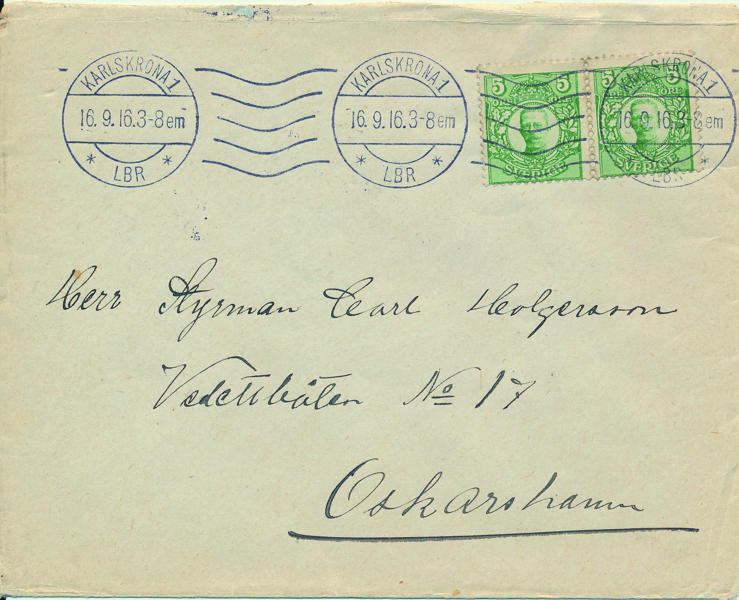 KARLSKRONA 1
16. 9. 16. 3-8 em
* LBR *
KARLSKRONA 1
16. 9. 16. 3-8 em
* LBR *
5 5
SVERIGE
5 5
SVERIGE
KARLSKRONA 1
16. 9. 16. 3-8 em
LBR *
Herr Styrman Carl Holgersson
Vedettbåten No 17
Oskarshamn